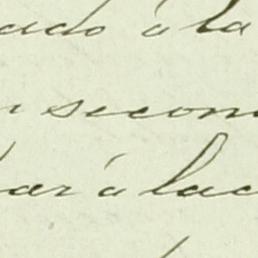 ado á la
secon
ar á lac